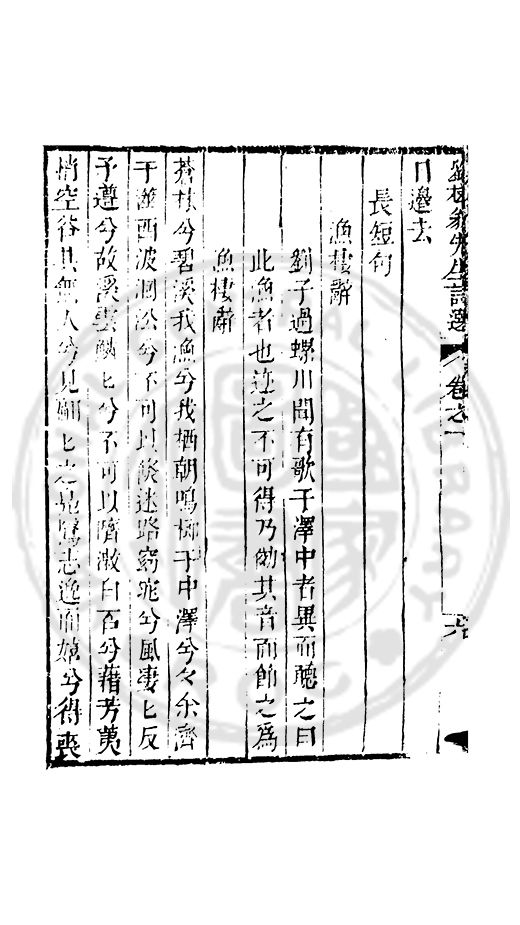 日邊去
長短句
漁棲辭
劉子過螺川聞有歌于澤中者異而聽之曰
此漁者也迹之不可得乃倣其音而節之爲
漁棲辭
蒼林兮碧溪我漁兮我栖朝鳴榔于中澤兮夕余濟
于灘西波洄㳂兮不可以泳迷路窮兮風凄匕反
予遵兮故溪雲鱗匕兮不可以隮漵白石兮藉芳荑
悄空谷其無人兮見顧匕之志逸而兮得喪
先生詩選
卷之一
六